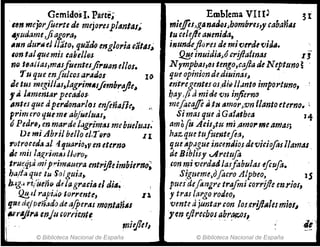 Gemidos I. Parte,
con mejor suerte de mejores plantas,
ayudame, si agora,
aun dura el llãto, quãdo en gloria cãtas,
con tal que mis cabellos
no tealias, mas fuentes sirvan ellos.
Tu que en sulcos arados 10
de tus megillas, lagrimas sembraste,
y à lementar pecados
antes que á perdonarlos enseñaste,
primero que me absueluas,
ó Pedro, en mar de lagrimas me bueluas.
De mi Abril bello el Toro 11
retroceda al Aquario, y en eterno
de mis lagrimas lloro,
trueque mi primauera entristeinbierno;
hasta que tu Sol guia,
haga risueño de la gracia el dia.
Qu el rapido torrente, 12
que despeñado de asperas montañas
arrastra en su corriente
miesses,
Emblema VIII. 31
miesses, ganados, hombres, y cabañas
tu celeste auenida,
inunde flores de mi verde vida.
Que inuidia, ò cristalinas 13
Nymphas, os tengo, casta de Neptuno
que opinion de diuinas,
entre gentes os dio llanto importuno,
hay, si à mi de vn infierno
me sacasse à tu amor, vn llanto eterno.
Si mas que à Galathea 14
ambis Aeis, tu mi amor me amas;
haz que tu fuente sea,
que apague incendios de viciosas llamas
de Biblis y Aretusa
con mi verdad las fabulas escusa.
Sigueme, ò sacro Alpheo, 15
pues de sangre trás mi corriste en rios,
y tras largo rodeo,
vente à juntar con los cristales mios,
y en estrechos abraços,
de
© Biblioteca Nacional de España
© Biblioteca Nacional de España